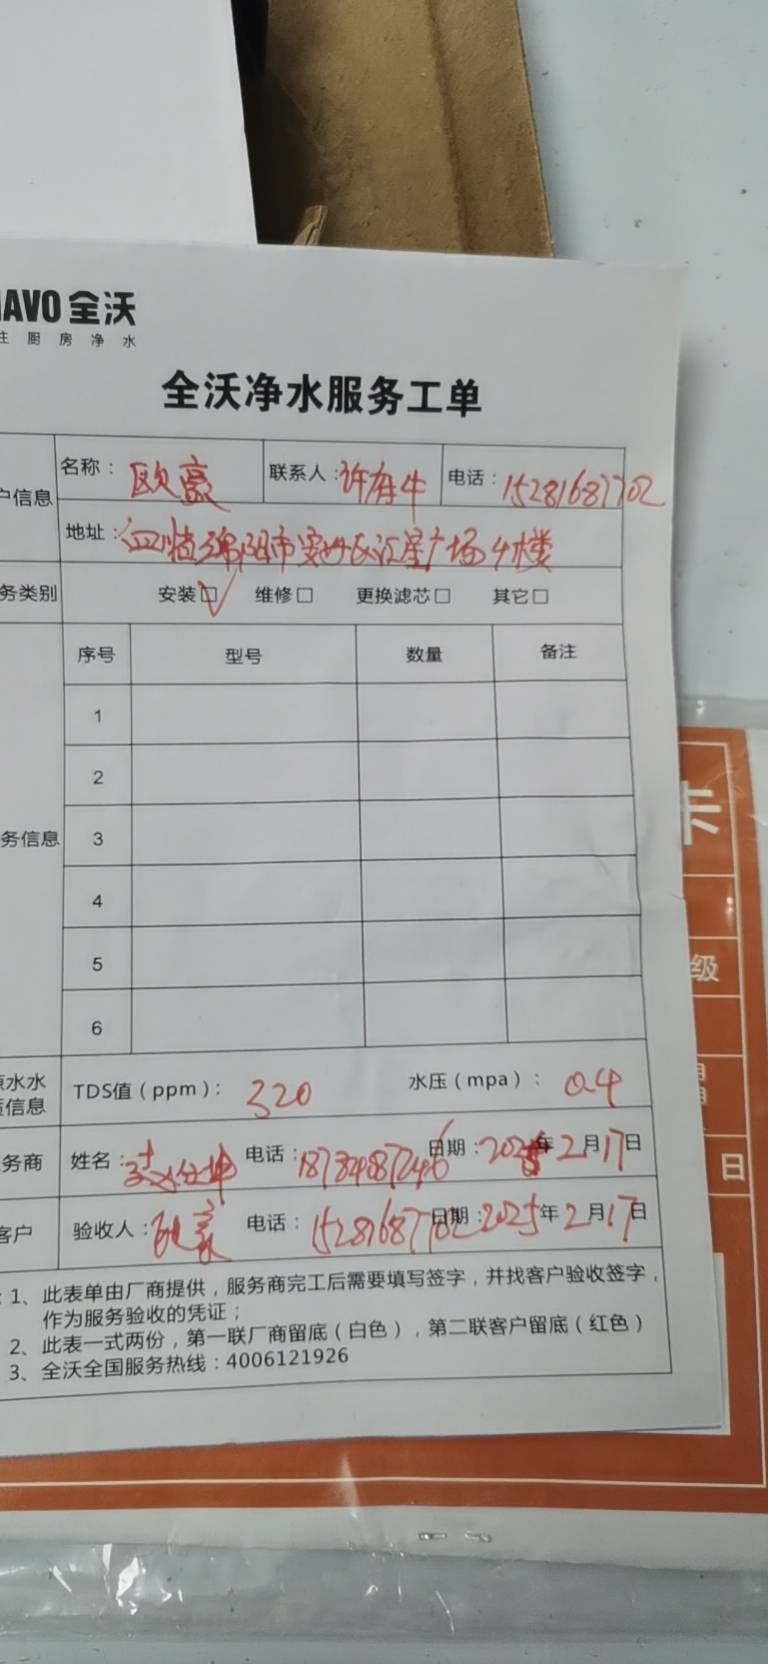 AVO 全沃
住厨房净水
全沃净水服务工单
户信息 名称： 欧豪 联系人： 许有牛 电话： 15281687702
地址： 四川省绵阳市安州区汇星广场4楼
务类别 安装☑ 维修□ 更换滤芯□ 其它□
序号 型号 数量 备注
1
2
务信息 3
4
5
6
原水水质信息 TDS值（ppm）： 320 水压（mpa）： 0.4
务商 姓名： 电话： 18784987246 日期： 2025年2月17日
客户 验收人： 欧豪 电话： 15281687702 日期： 2025年2月17日
：1、此表单由厂商提供，服务商完工后需要填写签字，并找客户验收签字，
作为服务验收的凭证；
2、此表一式两份，第一联厂商留底（白色），第二联客户留底（红色）
3、全沃全国服务热线：4006121926
卡
级
日